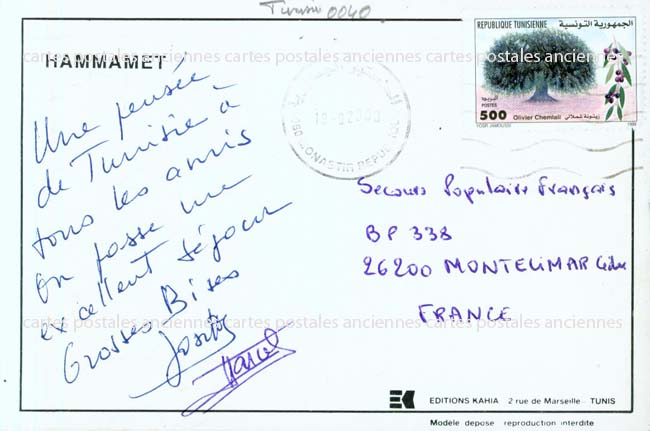 Tunisie 0040
HAMMAMET
Une pensée
de Tunisie à
tous les amis
On passe un
excellent séjour
Grosses Bises
REPUBLIQUE TUNISIENNE الجمهورية التونسية
البريد
POSTES
500 Olivier Chemlali زيتونة شملالي
1999
MONASTIR REPUBLIQUE
Secours Populaire Français
BP 338
26200 MONTELIMAR Cedex
FRANCE
EK EDITIONS KAHIA 2 rue de Marseille - TUNIS
Modèle dépose reproduction interdite
cartes postales anciennes cartes postales anciennes cartes postales anciennes
cartes postales anciennes cartes postales anciennes cartes postales anciennes